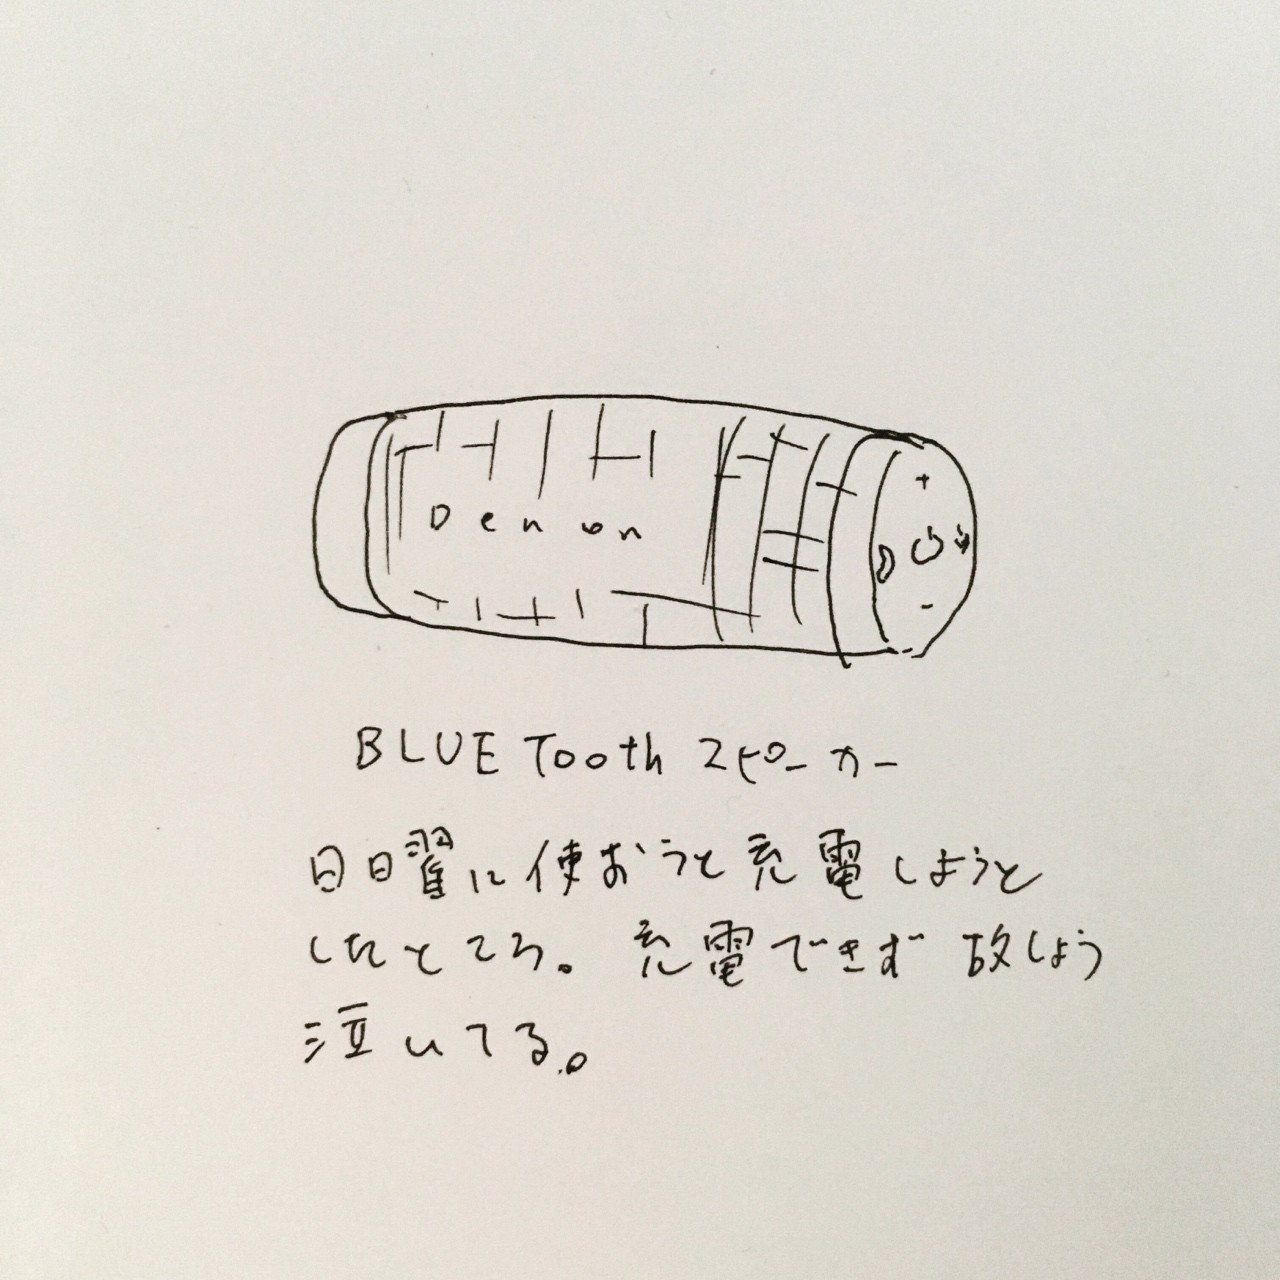 Denon
+
-
BLUE Tooth スピーカー
日日曜に使おうと充電しようと
したところ。充電できず故しょう
泣いてる。